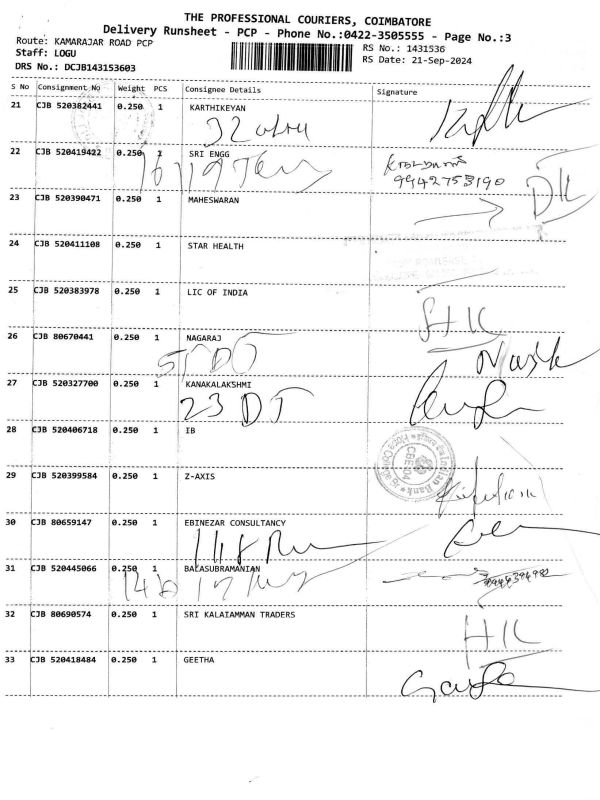 THE PROFESSIONAL COURIERS, COIMBATORE
Delivery Runsheet - PCP - Phone No.:0422-3505555 - Page No.:3
Route: KAMARAJAR ROAD PCP
RS No.: 1431536
Staff: LOGU
RS Date: 21-Sep-2024
DRS No.: DCJB143153603
S No Consignment No Weight PCS Consignee Details Signature
21 CJB 520382441 0.250 1 KARTHIKEYAN
32
22 CJB 520419422 0.250 1 SRI ENGG
9942753190
23 CJB 520390471 0.250 1 MAHESWARAN
24 CJB 520411108 0.250 1 STAR HEALTH
25 CJB 520383978 0.250 1 LIC OF INDIA
26 CJB 80670441 0.250 1 NAGARAJ
27 CJB 520327700 0.250 1 KANAKALAKSHMI
23 DT
28 CJB 520406718 0.250 1 IB
29 CJB 520399584 0.250 1 Z-AXIS
30 CJB 80659147 0.250 1 EBINEZAR CONSULTANCY
31 CJB 520445066 0.250 1 BALASUBRAMANIAN
32 CJB 80690574 0.250 1 SRI KALAIAMMAN TRADERS
33 CJB 520418484 0.250 1 GEETHA